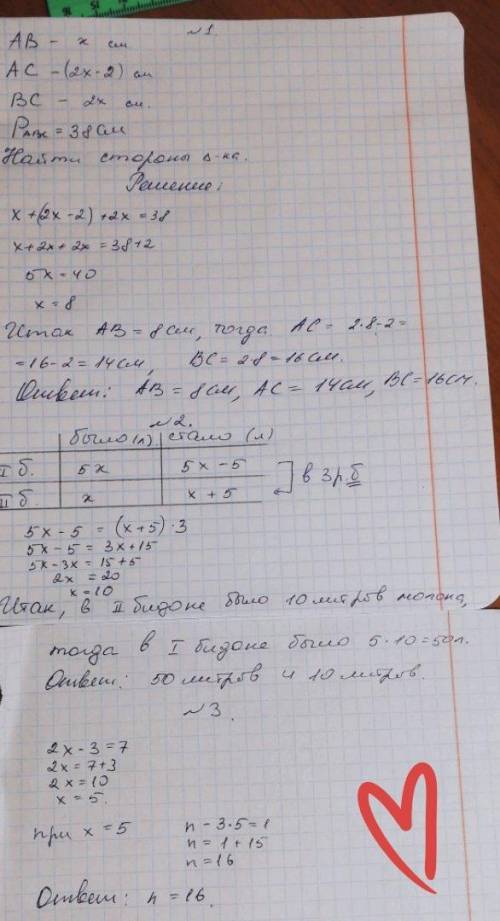 №1.
AB - x см
AC - (2x-2) см
BC - 2x см.
P = 38 см
Найти стороны Δ-ка.
Решение:
x + (2x - 2) + 2x = 38
x + 2x + 2x = 38 + 2
5x = 40
x = 8
Итак AB = 8 см, тогда AC = 2·8-2=
=16-2 = 14 см, BC = 2·8 = 16 см.
Ответ: AB = 8 см, AC = 14 см, BC = 16 см.
№2.
было (л) стало (л)
I б. 5x 5x - 5
II б. x x + 5
в 3 р. б
5x - 5 = (x + 5) · 3
5x - 5 = 3x + 15
5x - 3x = 15 + 5
2x = 20
x = 10
Итак, в II бидоне было 10 литров молока,
тогда в I бидоне было 5·10=50л.
Ответ: 50 литров и 10 литров.
№3.
2x - 3 = 7
2x = 7+3
2x = 10
x = 5.
при x = 5
n - 3·5 = 1
n = 1 + 15
n = 16
Ответ: n = 16.